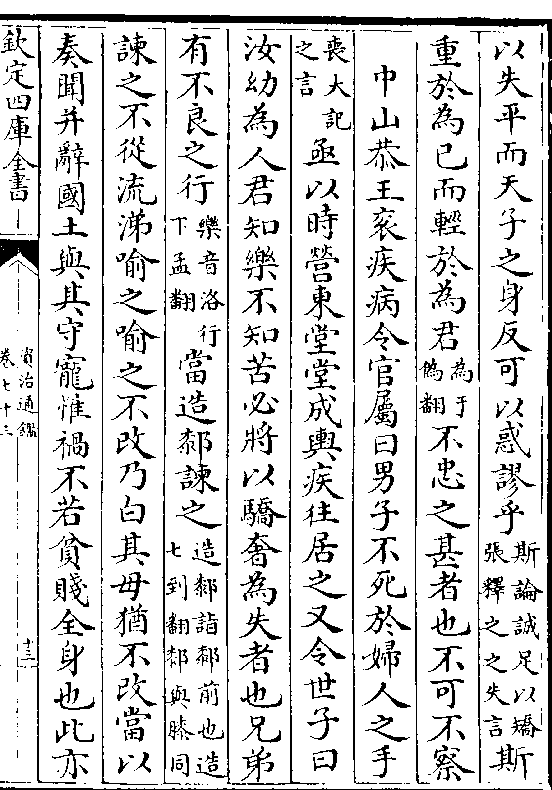 以失平而天子之身反可以惑謬乎斯論誠足以矯張釋之之失言斯
重於為己而輕於為君為于偽翻不忠之甚者也不可不察
中山恭王衮疾病令官屬曰男子不死於婦人之手
喪大記之言亟以時營東堂堂成輿疾往居之又令世子曰
汝幼為人君知樂不知苦必將以驕奢為失者也兄弟
有不良之行樂音洛行下孟翻當造厀諫之造厀詣厀前也造七到翻厀與膝同
諫之不從流涕喻之喻之不改乃白其母猶不改當以
奏聞并辭國土與其守寵惟禍不若貧賤全身也此亦
欽定四庫全書
資治通鑑
卷七十三
十三